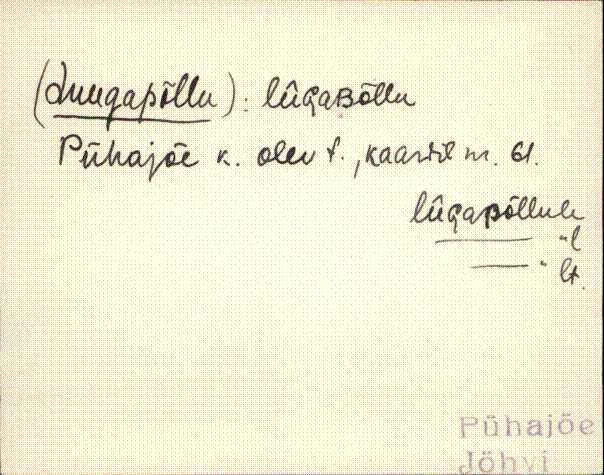 (Luugapõllu): lûGaBõllu
Pühajõe k. olev t., kaardil nr. 61.
lûGapõllule
——— " l
——— " lt.
Pühajõe
Jõhvi